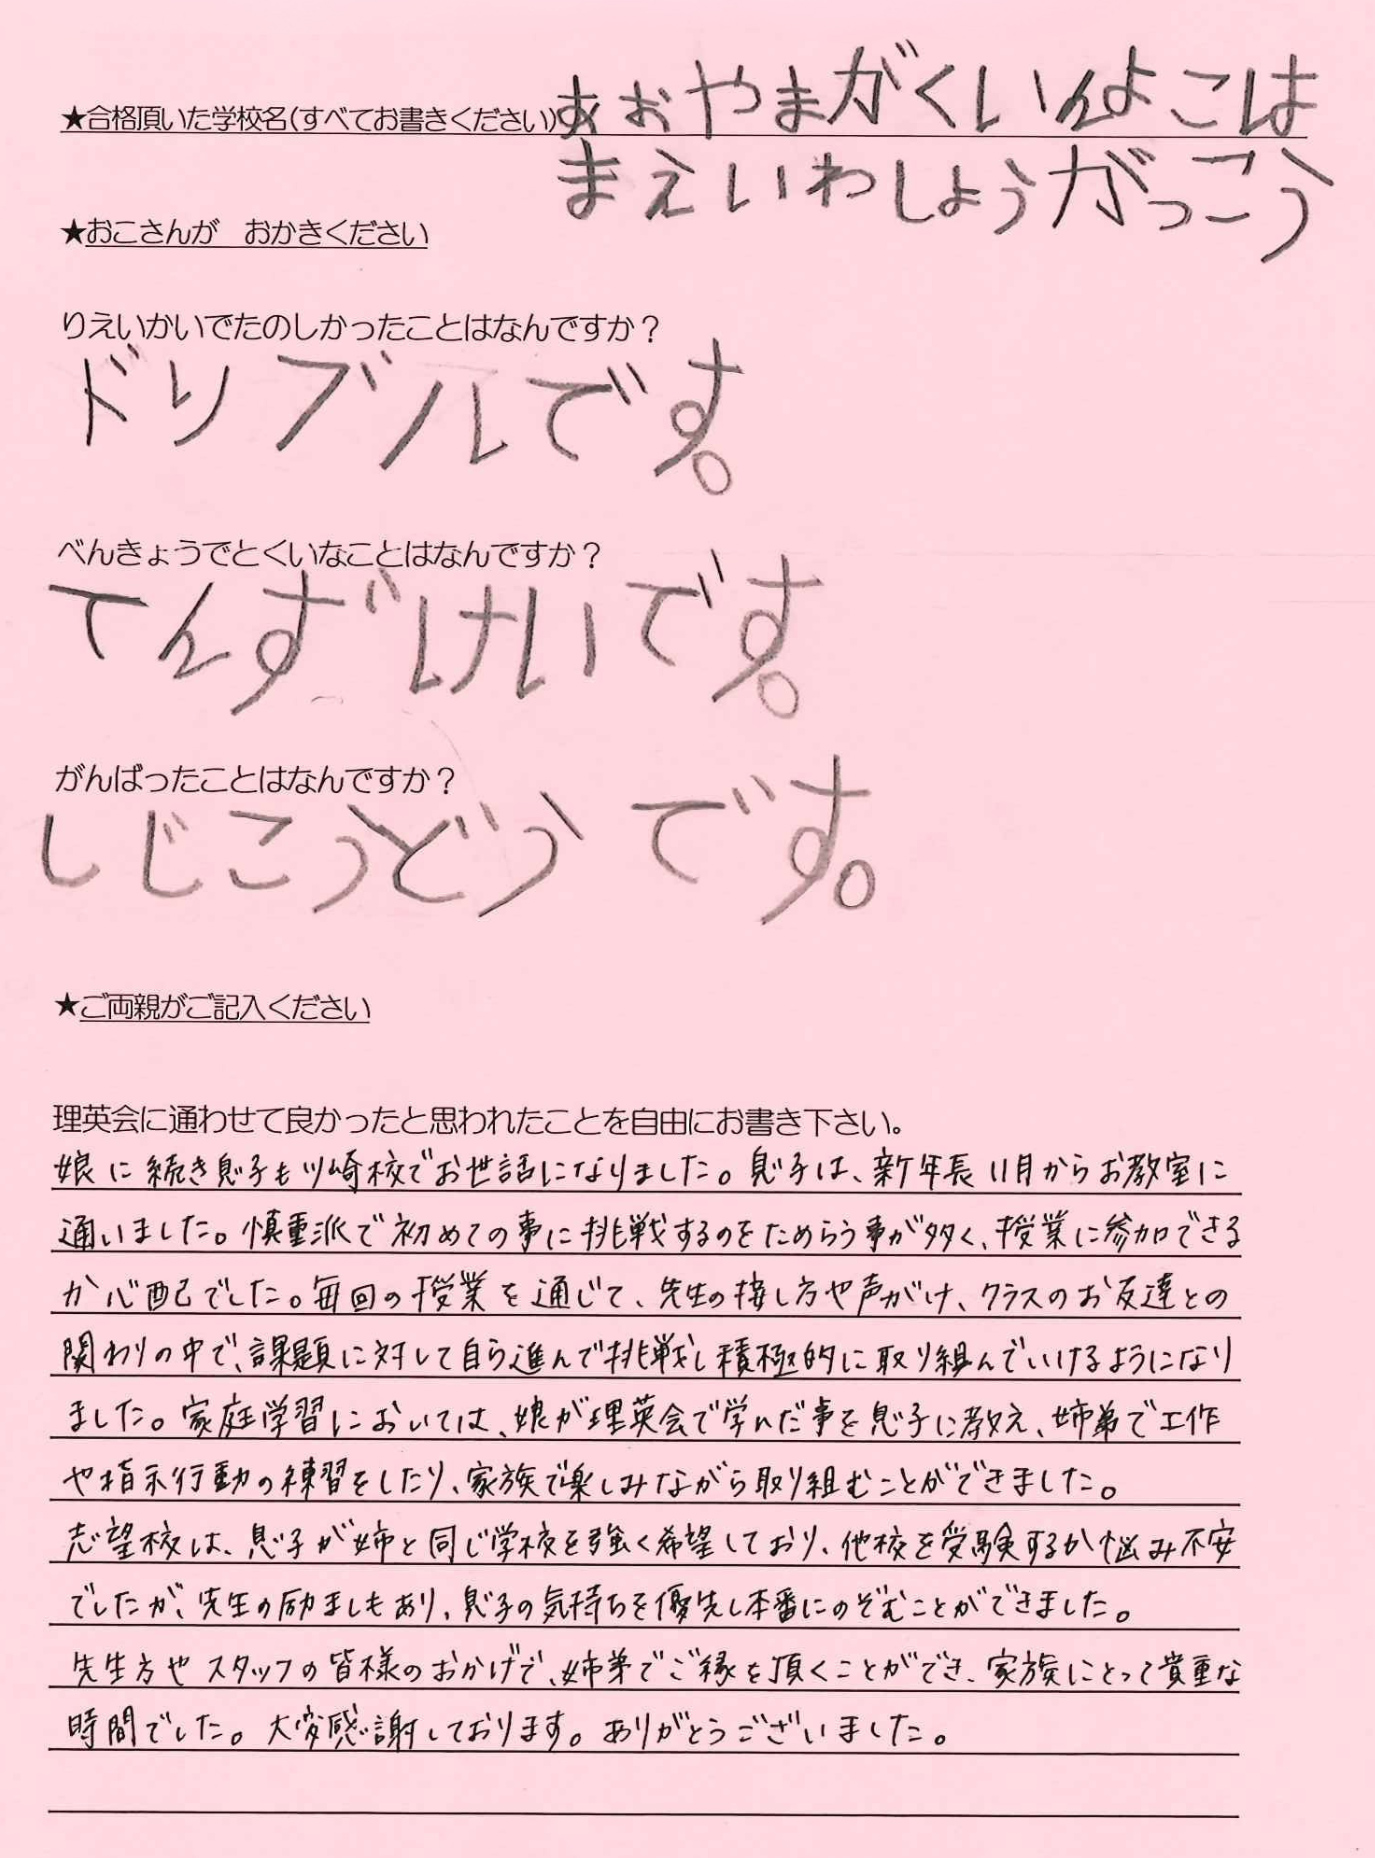 ★合格頂いた学校名(すべてお書きください)あおやまがくいんよこは
まえいわしょうがっこう
★おこさんが　おかきください
りえいかいでたのしかったことはなんですか？
ドリブルです。
べんきょうでとくいなことはなんですか？
てんずけいです。
がんばったことはなんですか？
しじこうどうです。
★ご両親がご記入ください
理英会に通わせて良かったと思われたことを自由にお書き下さい。
娘に続き息子も川崎校でお世話になりました。息子は、新年長11月からお教室に
通いました。慎重派で初めての事に挑戦するのをためらう事が多く、授業に参加できる
か心配でした。毎回の授業を通じて、先生の接し方や声がけ、クラスのお友達との
関わりの中で、課題に対して自ら進んで挑戦し積極的に取り組んでいけるようになり
ました。家庭学習においては、娘が理英会で学んだ事を息子に教え、姉弟で工作
や指示行動の練習をしたり、家族で楽しみながら取り組むことができました。
志望校は、息子が姉と同じ学校を強く希望しており、他校を受験するか悩み不安
でしたが、先生の励ましもあり、息子の気持ちを優先し本番にのぞむことができました。
先生方やスタッフの皆様のおかげで、姉弟でご縁を頂くことができ、家族にとって貴重な
時間でした。大変感謝しております。ありがとうございました。